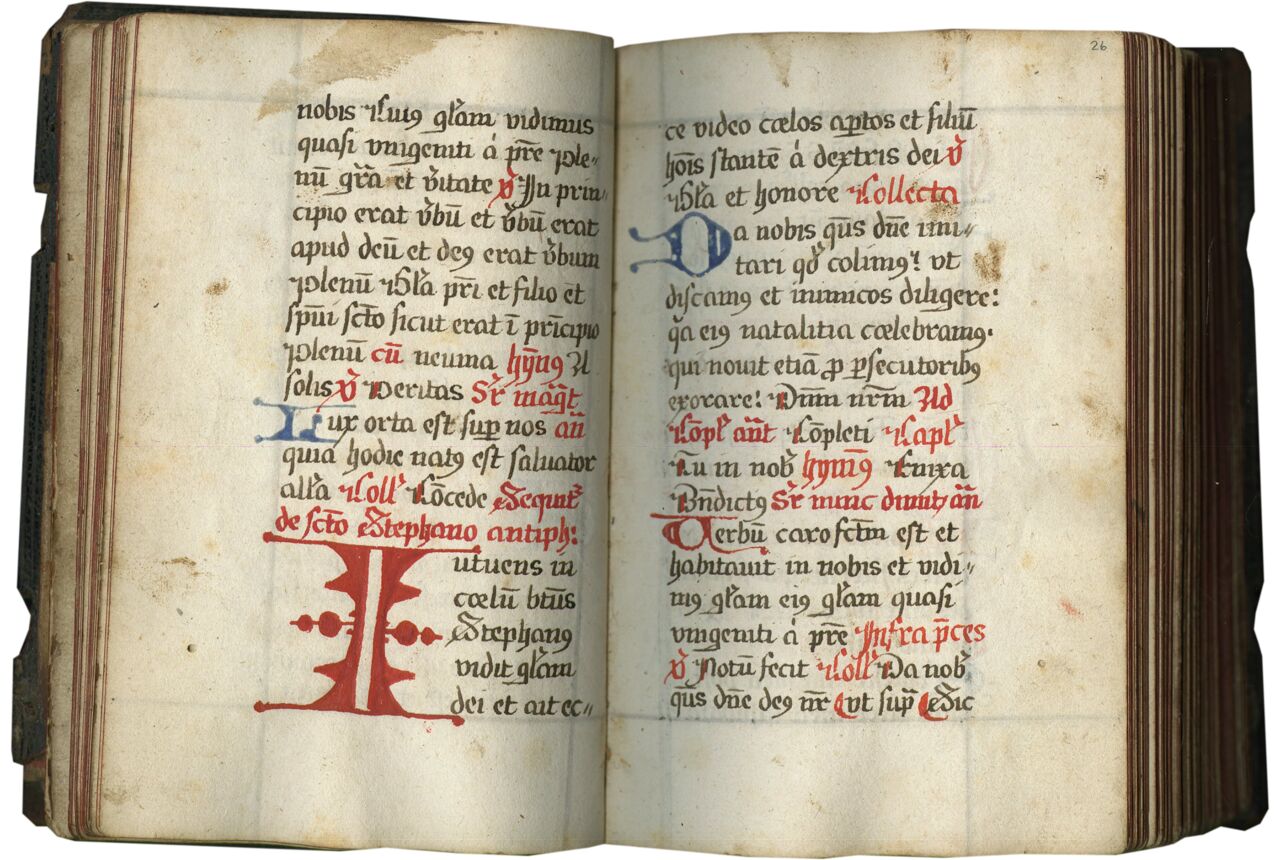 nobis Cuiꝯ gl̃am vidimus
quasi vnigeniti á pr̃e Ple„
nũ gr̃a et ṽitate ℣ In prin„
cipio erat ṽbũ et ṽbũ erat
apud deũ et deꝯ erat ṽbum
Plenũ Gl̃a pr̃i et filio et
sp̃ui sc̃to sicut erat ĩ pr̃icipio
Plenũ cũ neuma hỹnꝯ A
solis ℣ Veritas Sr̃ mag̃t
Lux orta est sup̱ nos añ
quia hodie natꝯ est saluator
all̃a Coll̃ Cõcede Sequit̃
de sc̃to Stephano antiph:
Intuens in
cœlũ bt̃us
Stephanꝯ
vidit gl̃am
dei et ait ec„
26
ce video cœlos ap̱tos et filiũ
hõis stantẽ á dextris dei ℣
Gl̃a et honore Collecta
Da nobis qũs dñe imi„
tari qd̃ colimꝯ! vt
discamꝯ et inimicos diligere:
q̃a eiꝯ natalitia cœlebramꝯ·
qui nouit etiã ꝓ ꝑsecutoribꝯ
exorare! Dñm nr̃m Ad
Cõpl̃ añt Cõpleti Capl̃
Tu in nob̃ hym̃ꝯ Enixa
Bñdictꝯ Sr̃ nunc dimitꝫ añ
Verbũ caro fc̃tm est et
habitauit in nobis et vidi„
mꝯ gl̃am eiꝯ gl̃am quasi
vnigeniti á pr̃e Infra p̃ces
℣ Notũ fecit Coll̃ Da nob̃
qũs dñe deꝯ nr̃ vt sup̃ Sic